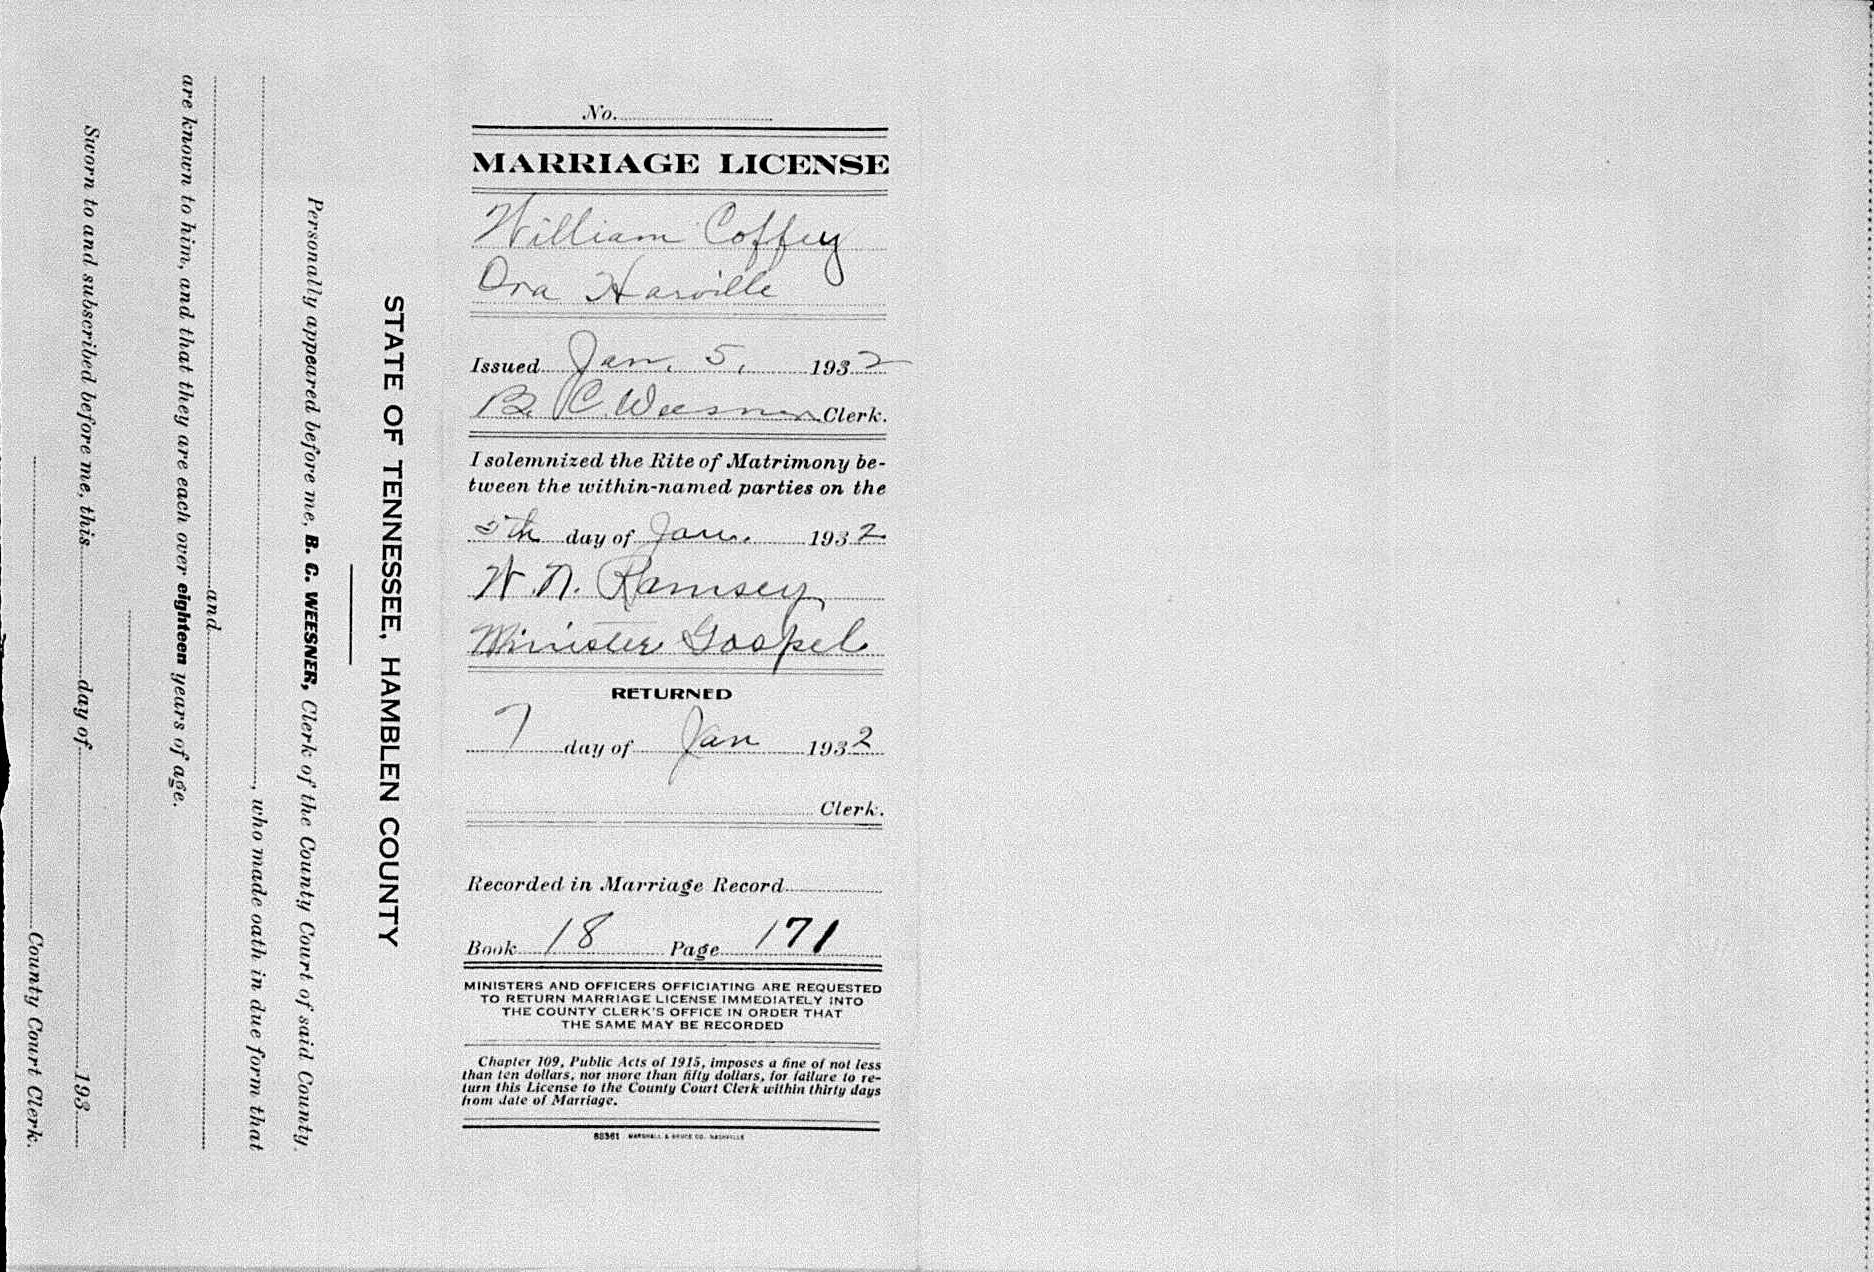 No.
MARRIAGE LICENSE
William Coffey
Ora Harville
Issued Jan. 5, 1932
B. C. Weesner Clerk.
I solemnized the Rite of Matrimony be-
tween the within-named parties on the
5th day of Jan. 1932
W. N. Ramsey
Minister Gospel
RETURNED
7 day of Jan 1932
Clerk.
Recorded in Marriage Record
Book 18 Page 171
MINISTERS AND OFFICERS OFFICIATING ARE REQUESTED
TO RETURN MARRIAGE LICENSE IMMEDIATELY INTO
THE COUNTY CLERK'S OFFICE IN ORDER THAT
THE SAME MAY BE RECORDED
Chapter 109, Public Acts of 1915, imposes a fine of not less
than ten dollars, nor more than fifty dollars, for failure to re-
turn this License to the County Court Clerk within thirty days
from date of Marriage.
88361 MARSHALL & BRUCE CO. NASHVILLE
STATE OF TENNESSEE, HAMBLEN COUNTY
Personally appeared before me, B. C. WEESNER, Clerk of the County Court of said County
, who made oath in due form that
and
are known to him, and that they are each over eighteen years of age.
Sworn to and subscribed before me, this day of 193
County Court Clerk.